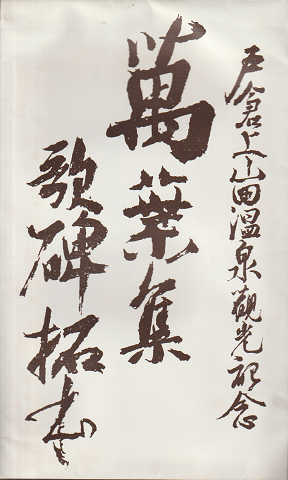 戸倉上山田温泉觀光記念
萬葉集
歌碑拓本